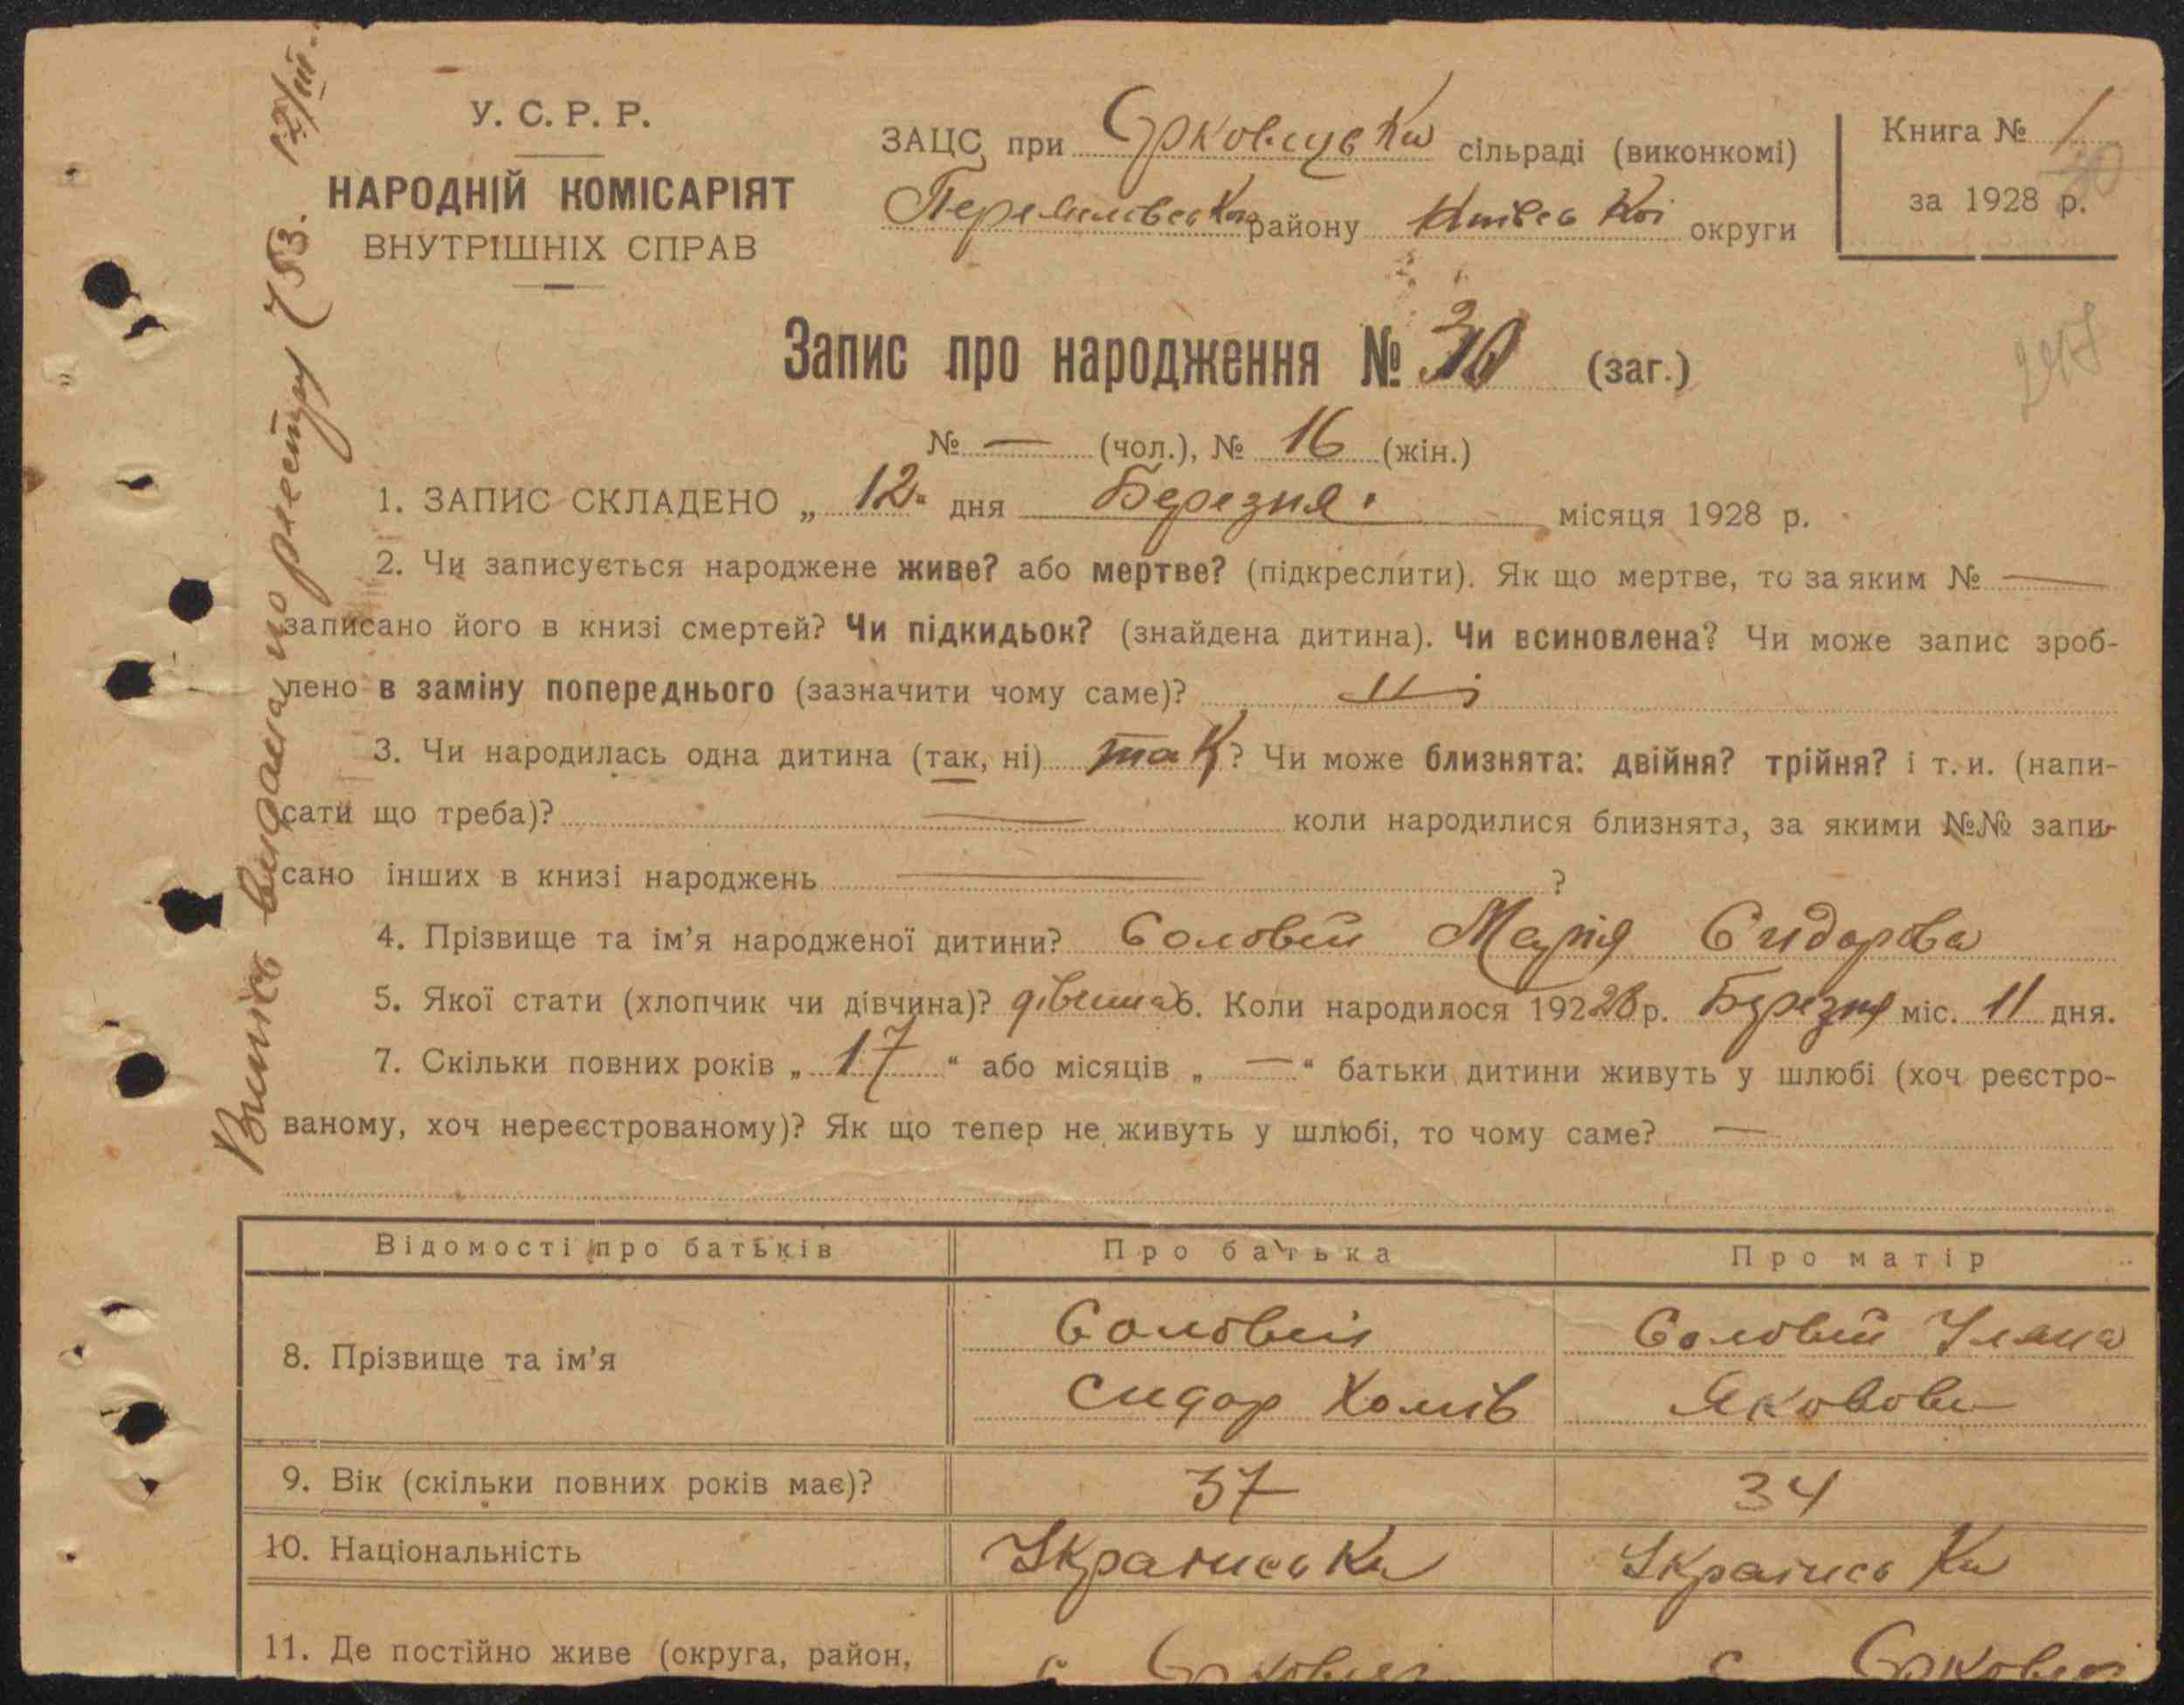 У. С. Р. Р.
НАРОДНІЙ КОМІСАРІЯТ
ВНУТРІШНІХ СПРАВ
ЗАЦС при Єрковецька сільраді (виконкомі)
району Київської округи
Книга № 1
30
за 1928 р.
Запис про народження № 30 (заг.)
№ — (чол.), № 16 (жін.)
1. ЗАПИС СКЛАДЕНО „ 12 “ дня Березня місяця 1928 р.
2. Чи записується народжене живе? або мертве? (підкреслити). Як що мертве, то за яким № —
записано його в книзі смертей? Чи підкидьок? (знайдена дитина). Чи всиновлена? Чи може запис зроб-
лено в заміну попереднього (зазначити чому саме)? ні
3. Чи народилась одна дитина (так, ні) так? Чи може близнята: двійня? трійня? і т. и. (напи-
сати що треба)? — коли народилися близнята, за якими №№ запи-
сано інших в книзі народжень — ?
4. Прізвище та ім’я народженої дитини? Соловей Марія Сидорова
5. Якої стати (хлопчик чи дівчина)? дівчина 6. Коли народилося 19228 р. Березня міс. 11 дня.
7. Скільки повних років „ 17 “ або місяців „ — “ батьки дитини живуть у шлюбі (хоч реєстро-
ваному, хоч нереєстрованому)? Як що тепер не живуть у шлюбі, то чому саме? —
Відомості про батьків Про батька Про матір
8. Прізвище та ім’я Соловей Сидор Хомів Соловей Уляна Яковова
9. Вік (скільки повних років має)? 37 34
10. Національність Українська Українська
11. Де постійно живе (округа, район, с. Єрковці с. Єрковці
Випись видана по реєстру 12/III